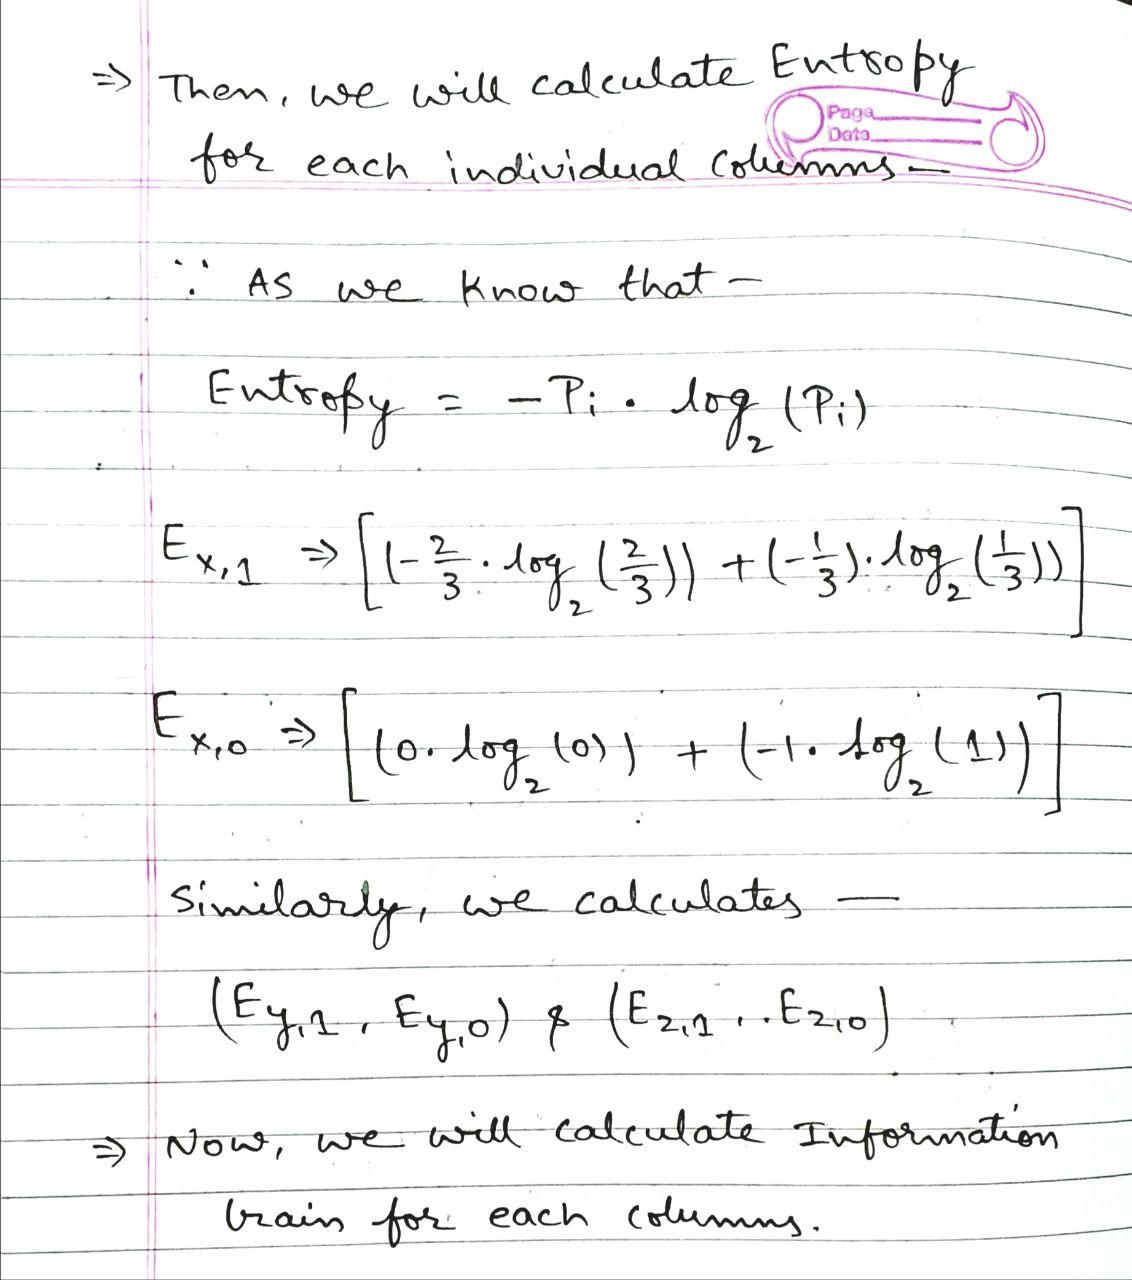 ⇒ Then, we will calculate Entropy
Page
Date
for each individual columns –
∵ As we know that –
Entropy = – Pi . log₂ (Pi)
Ex,1 ⇒ [(-2/3 . log₂ (2/3)) + (-1/3) . log₂ (1/3))]
Ex,0 ⇒ [(0. log₂ (0)) + (-1. log₂ (1))]
Similarly, we calculates —
(Ey,1 , Ey,0) & (Ez,1 , . Ez,0)
⇒ Now, we will calculate Information
Grain for each columns.